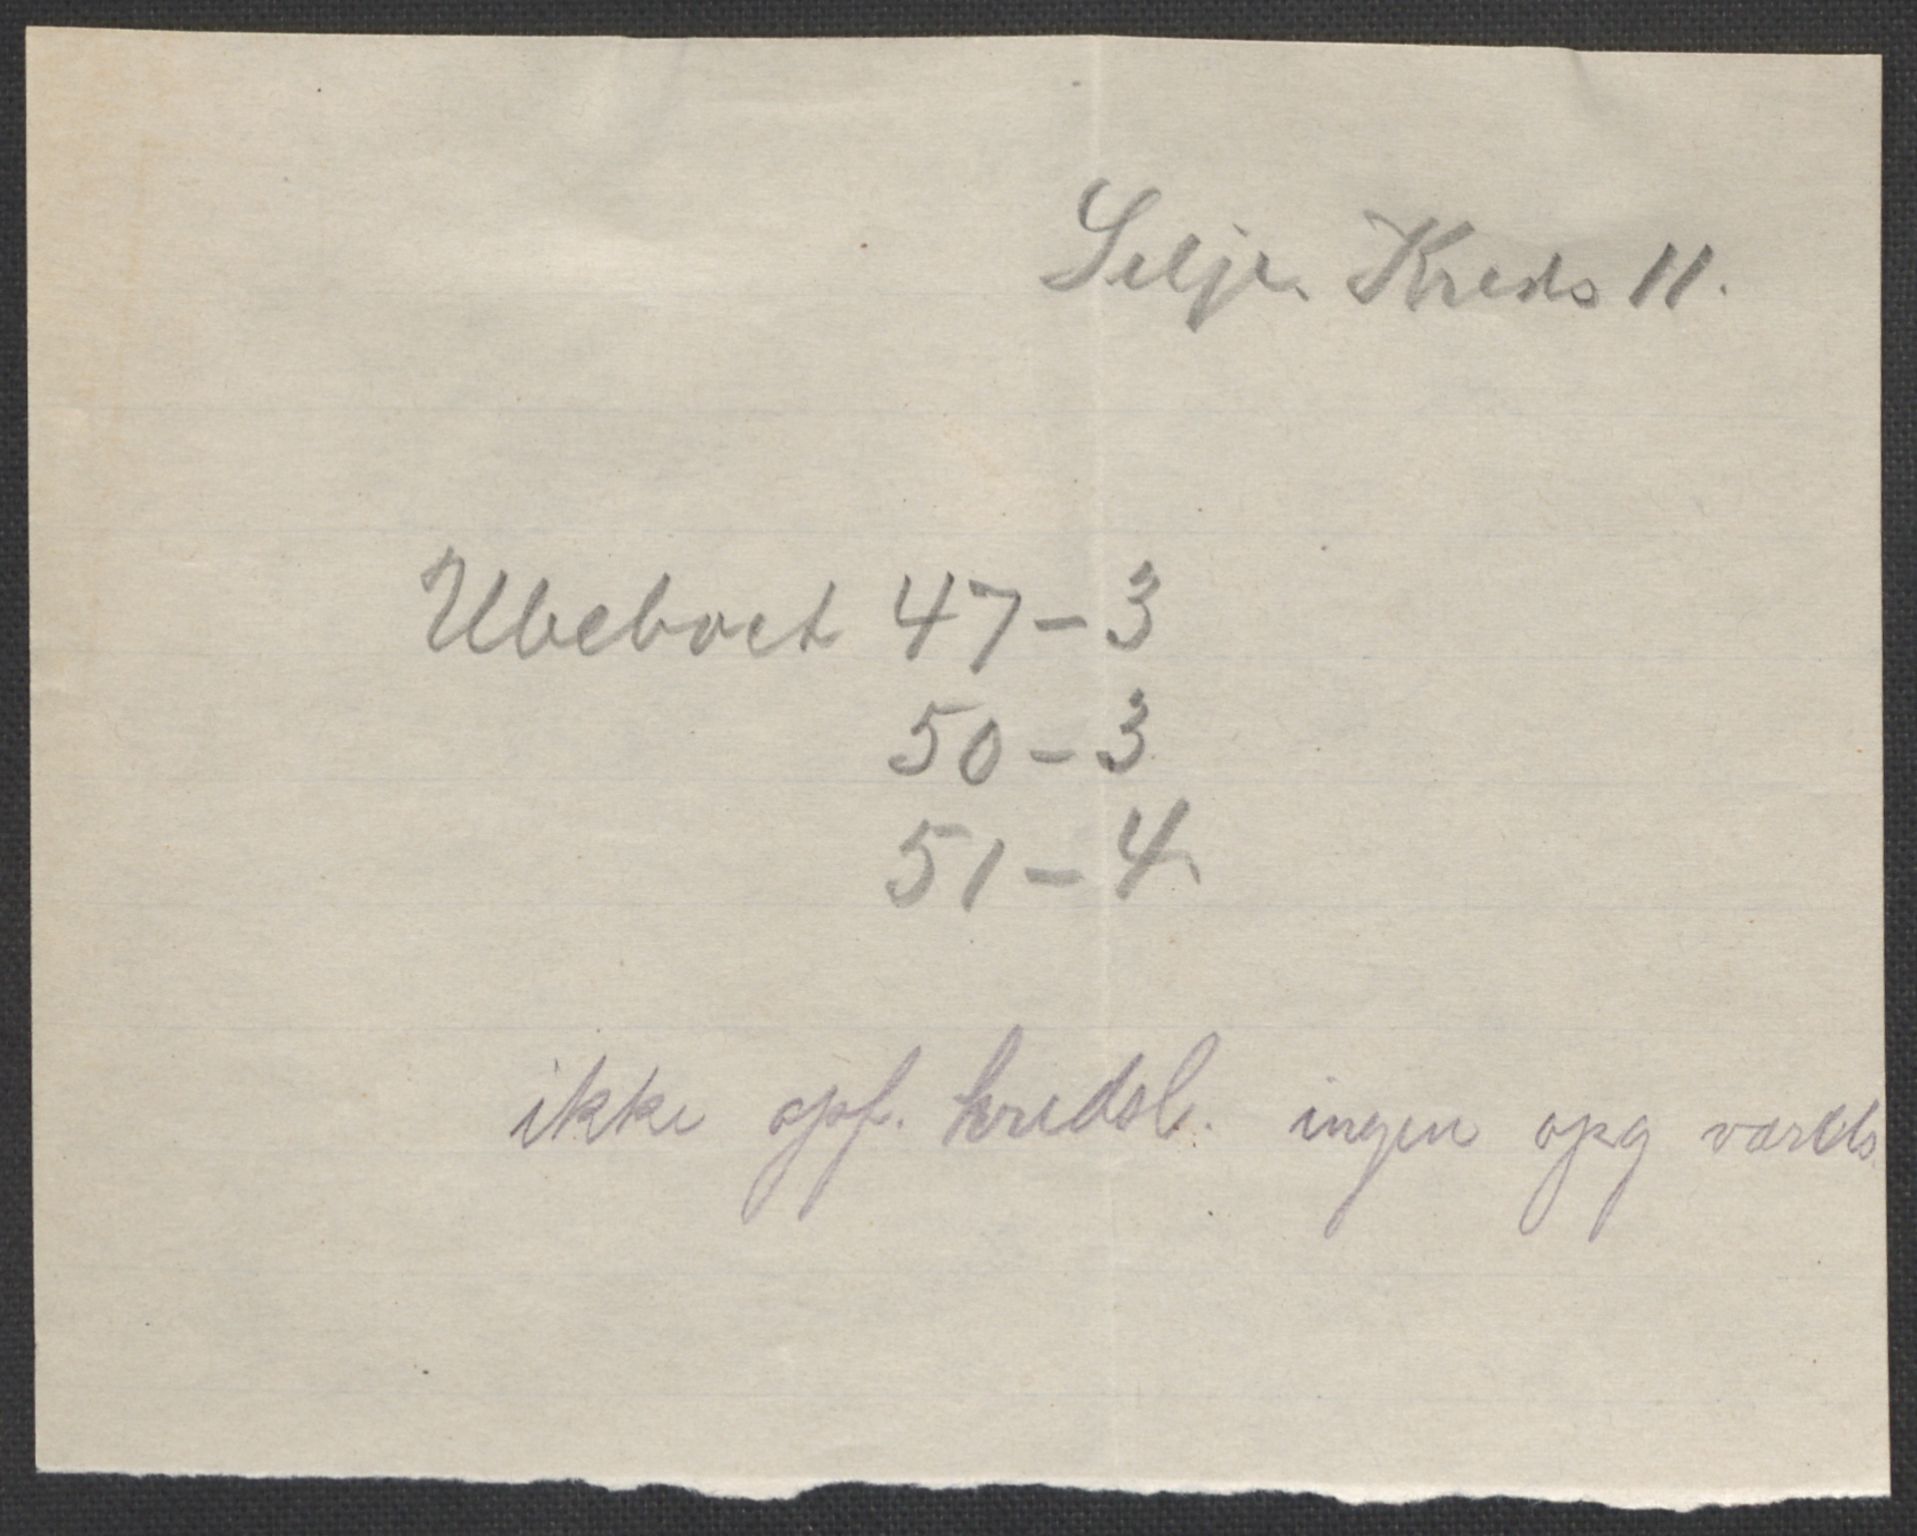 Selje. Kreds 11.
Ubeboet 47-3
50-3
51-4
ikke opf. kredsl. ingen opg